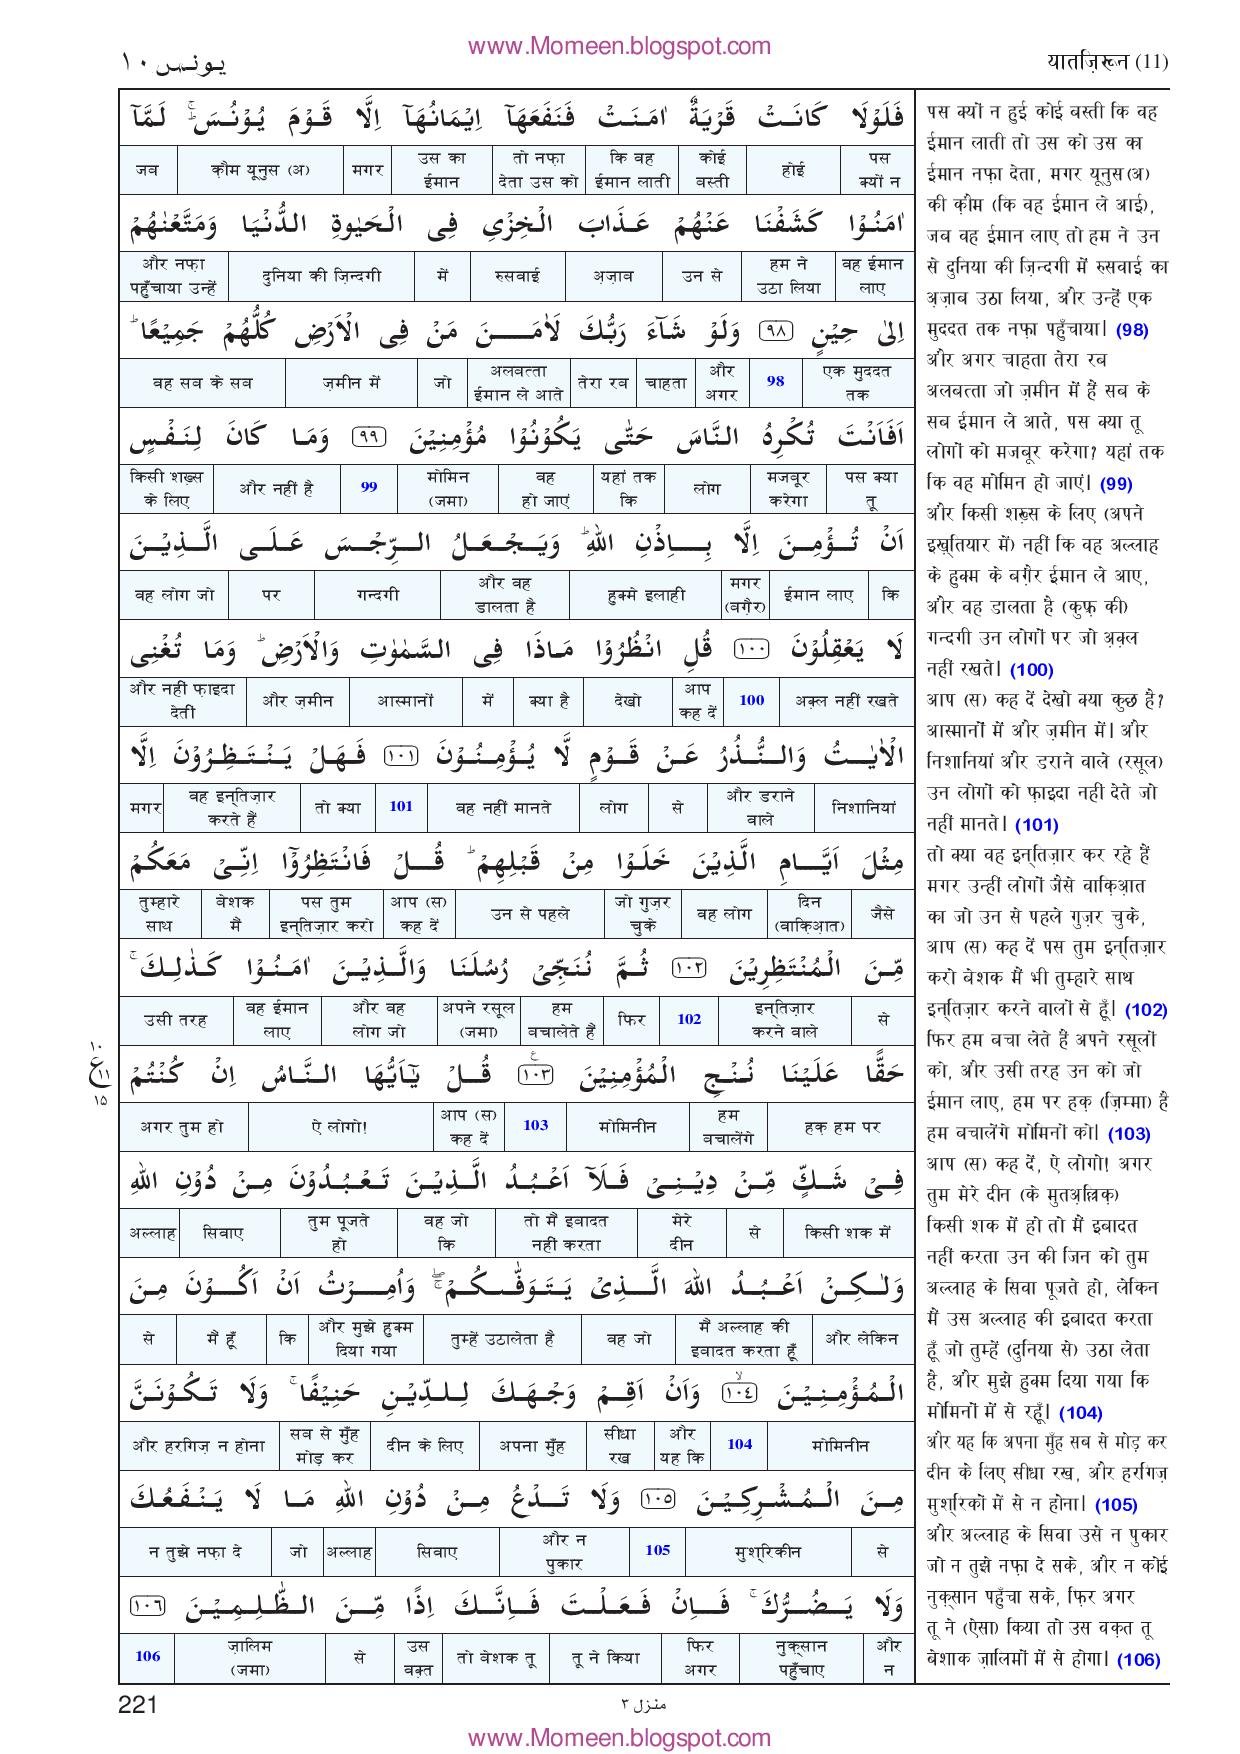 www.Momeen.blogspot.com
يونس ١٠
यातज़िरून (11)
فَلَوْلَا كَانَتْ قَرْيَةٌ اٰمَنَتْ فَنَفَعَهَآ اِيْمَانُهَآ اِلَّا قَوْمَ يُوْنُسَ ۚ لَمَّآ
पस क्यों न | होई | कोई बस्ती | कि वह ईमान लाती | तो नफ़ा देता उस को | उस का ईमान | मगर | क़ौम यूनुस (अ) | जब
اٰمَنُوْا كَشَفْنَا عَنْهُمْ عَذَابَ الْخِزْيِ فِى الْحَيٰوةِ الدُّنْيَا وَمَتَّعْنٰهُمْ
वह ईमान लाए | हम ने उठा लिया | उन से | अ़ज़ाब | रुसवाई | में | दुनिया की ज़िन्दगी | और नफ़ा पहुँचाया उन्हें
اِلٰى حِيْنٍ ٩٨ وَلَوْ شَآءَ رَبُّكَ لَاٰمَنَ مَنْ فِى الْاَرْضِ كُلُّهُمْ جَمِيْعًا ؕ
एक मुददत तक | 98 | और अगर | चाहता | तेरा रब | अलबत्ता ईमान ले आते | जो | ज़मीन में | वह सब के सब
اَفَاَنْتَ تُكْرِهُ النَّاسَ حَتّٰى يَكُوْنُوْا مُؤْمِنِيْنَ ٩٩ وَمَا كَانَ لِنَفْسٍ
पस क्या तू | मजबूर करेगा | लोग | यहां तक कि | वह हो जाएं | मोमिन (जमा) | 99 | और नहीं है | किसी शख़्स के लिए
اَنْ تُؤْمِنَ اِلَّا بِاِذْنِ اللّٰهِ ؕ وَيَجْعَلُ الرِّجْسَ عَلَى الَّذِيْنَ
कि | ईमान लाए | मगर (बग़ैर) | हुक्मे इलाही | और वह डालता है | गन्दगी | पर | वह लोग जो
لَا يَعْقِلُوْنَ ١٠٠ قُلِ انْظُرُوْا مَاذَا فِى السَّمٰوٰتِ وَالْاَرْضِ ؕ وَمَا تُغْنِى
अक़्ल नहीं रखते | 100 | आप कह दें | देखो | क्या है | में | आस्मानों | और ज़मीन | और नहीं फ़ाइदा देती
الْاٰيٰتُ وَالنُّذُرُ عَنْ قَوْمٍ لَّا يُؤْمِنُوْنَ ١٠١ فَهَلْ يَنْتَظِرُوْنَ اِلَّا
निशानियां | और डराने वाले | से | लोग | वह नहीं मानते | 101 | तो क्या | वह इन्तिज़ार करते हैं | मगर
مِثْلَ اَيَّامِ الَّذِيْنَ خَلَوْا مِنْ قَبْلِهِمْ ؕ قُلْ فَانْتَظِرُوْٓا اِنِّىْ مَعَكُمْ
जैसे | दिन (वाक़िआ़त) | वह लोग | जो गुज़र चुके | उन से पहले | आप (स) कह दें | पस तुम इन्तिज़ार करो | बेशक मैं | तुम्हारे साथ
مِّنَ الْمُنْتَظِرِيْنَ ١٠٢ ثُمَّ نُنَجِّىْ رُسُلَنَا وَالَّذِيْنَ اٰمَنُوْا كَذٰلِكَ ۚ
से | इन्तिज़ार करने वाले | 102 | फिर | हम बचालेते हैं | अपने रसूल (जमा) | और वह लोग जो | वह ईमान लाए | उसी तरह
١٠
ع ١١
١٥
حَقًّا عَلَيْنَا نُنْجِ الْمُؤْمِنِيْنَ ١٠٣ ع قُلْ يٰٓاَيُّهَا النَّاسُ اِنْ كُنْتُمْ
हक़ हम पर | हम बचालेंगे | मोमिनीन | 103 | आप (स) कह दें | ऐ लोगो! | अगर तुम हो
فِىْ شَكٍّ مِّنْ دِيْنِىْ فَلَآ اَعْبُدُ الَّذِيْنَ تَعْبُدُوْنَ مِنْ دُوْنِ اللّٰهِ
किसी शक में | से | मेरे दीन | तो मैं इबादत नहीं करता | वह जो कि | तुम पूजते हो | सिवाए | अल्लाह
وَلٰكِنْ اَعْبُدُ اللّٰهَ الَّذِىْ يَتَوَفّٰىكُمْ ۖۚ وَاُمِرْتُ اَنْ اَكُوْنَ مِنَ
और लेकिन | मैं अल्लाह की इबादत करता हूँ | वह जो | तुम्हें उठालेता है | और मुझे हुक्म दिया गया | कि | मैं हूँ | से
الْمُؤْمِنِيْنَ ١٠٤ ۙ وَاَنْ اَقِمْ وَجْهَكَ لِلدِّيْنِ حَنِيْفًا ۚ وَلَا تَكُوْنَنَّ
मोमिनीन | 104 | और यह कि | सीधा रख | अपना मुँह | दीन के लिए | सब से मुँह मोड़ कर | और हरगिज़ न होना
مِنَ الْمُشْرِكِيْنَ ١٠٥ وَلَا تَدْعُ مِنْ دُوْنِ اللّٰهِ مَا لَا يَنْفَعُكَ
से | मुश्रिकीन | 105 | और न पुकार | सिवाए | अल्लाह | जो | न तुझे नफ़ा दे
وَلَا يَضُرُّكَ ۚ فَاِنْ فَعَلْتَ فَاِنَّكَ اِذًا مِّنَ الظّٰلِمِيْنَ ١٠٦
और न | नुक़्सान पहुँचाए | फिर अगर | तू ने किया | तो बेशक तू | उस वक़्त | से | ज़ालिम (जमा) | 106
पस क्यों न हुई कोई बस्ती कि वह
ईमान लाती तो उस को उस का
ईमान नफ़ा देता, मगर यूनुस(अ)
की क़ौम (कि वह ईमान ले आई),
जब वह ईमान लाए तो हम ने उन
से दुनिया की ज़िन्दगी में रुसवाई का
अ़ज़ाब उठा लिया, और उन्हें एक
मुददत तक नफ़ा पहुँचाया। (98)
और अगर चाहता तेरा रब
अलबत्ता जो ज़मीन में हैं सब के
सब ईमान ले आते, पस क्या तू
लोगों को मजबूर करेगा? यहां तक
कि वह मोमिन हो जाएं। (99)
और किसी शख़्स के लिए (अपने
इख़्तियार में) नहीं कि वह अल्लाह
के हुक्म के बग़ैर ईमान ले आए,
और वह डालता है (कुफ़्र की)
गन्दगी उन लोगों पर जो अ़क़्ल
नहीं रखते। (100)
आप (स) कह दें देखो क्या कुछ है?
आस्मानों में और ज़मीन में। और
निशानियां और डराने वाले (रसूल)
उन लोगों को फ़ाइदा नही देते जो
नहीं मानते। (101)
तो क्या वह इन्तिज़ार कर रहे हैं
मगर उन्हीं लोगों जैसे वाक़िआ़त
का जो उन से पहले गुज़र चुके,
आप (स) कह दें पस तुम इन्तिज़ार
करो बेशक मैं भी तुम्हारे साथ
इन्तिज़ार करने वालों से हूँ। (102)
फिर हम बचा लेते हैं अपने रसूलों
को, और उसी तरह उन को जो
ईमान लाए, हम पर हक़ (ज़िम्मा) है
हम बचालेंगे मोमिनों को। (103)
आप (स) कह दें, ऐ लोगो! अगर
तुम मेरे दीन (के मुतअ़ल्लिक़)
किसी शक में हो तो मैं इबादत
नहीं करता उन की जिन को तुम
अल्लाह के सिवा पूजते हो, लेकिन
मैं उस अल्लाह की इबादत करता
हूँ जो तुम्हें (दुनिया से) उठा लेता
है, और मुझे हुक्म दिया गया कि
मोमिनों में से रहूँ। (104)
और यह कि अपना मुँह सब से मोड़ कर
दीन के लिए सीधा रख, और हरगिज़
मुश्रिकों में से न होना। (105)
और अल्लाह के सिवा उसे न पुकार
जो न तुझे नफ़ा दे सके, और न कोई
नुक़्सान पहुँचा सके, फिर अगर
तू ने (ऐसा) किया तो उस वक़्त तू
बेशक ज़ालिमों में से होगा। (106)
221
منزل ٣
www.Momeen.blogspot.com